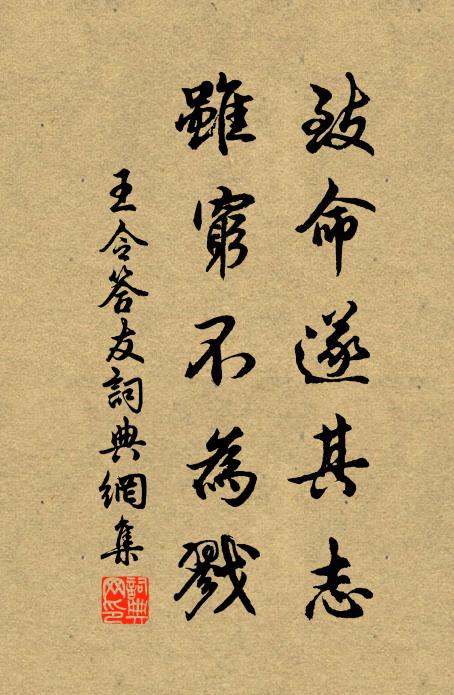 致命遂其志
雖窮不為戮
王令答友詞典網集
詞典網印